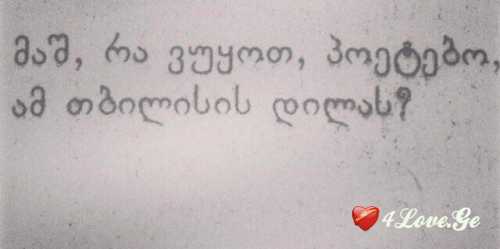 მაშ, რა ვუყოთ, პოეტებო,
ამ თბილისის დილას?
4Love.Ge